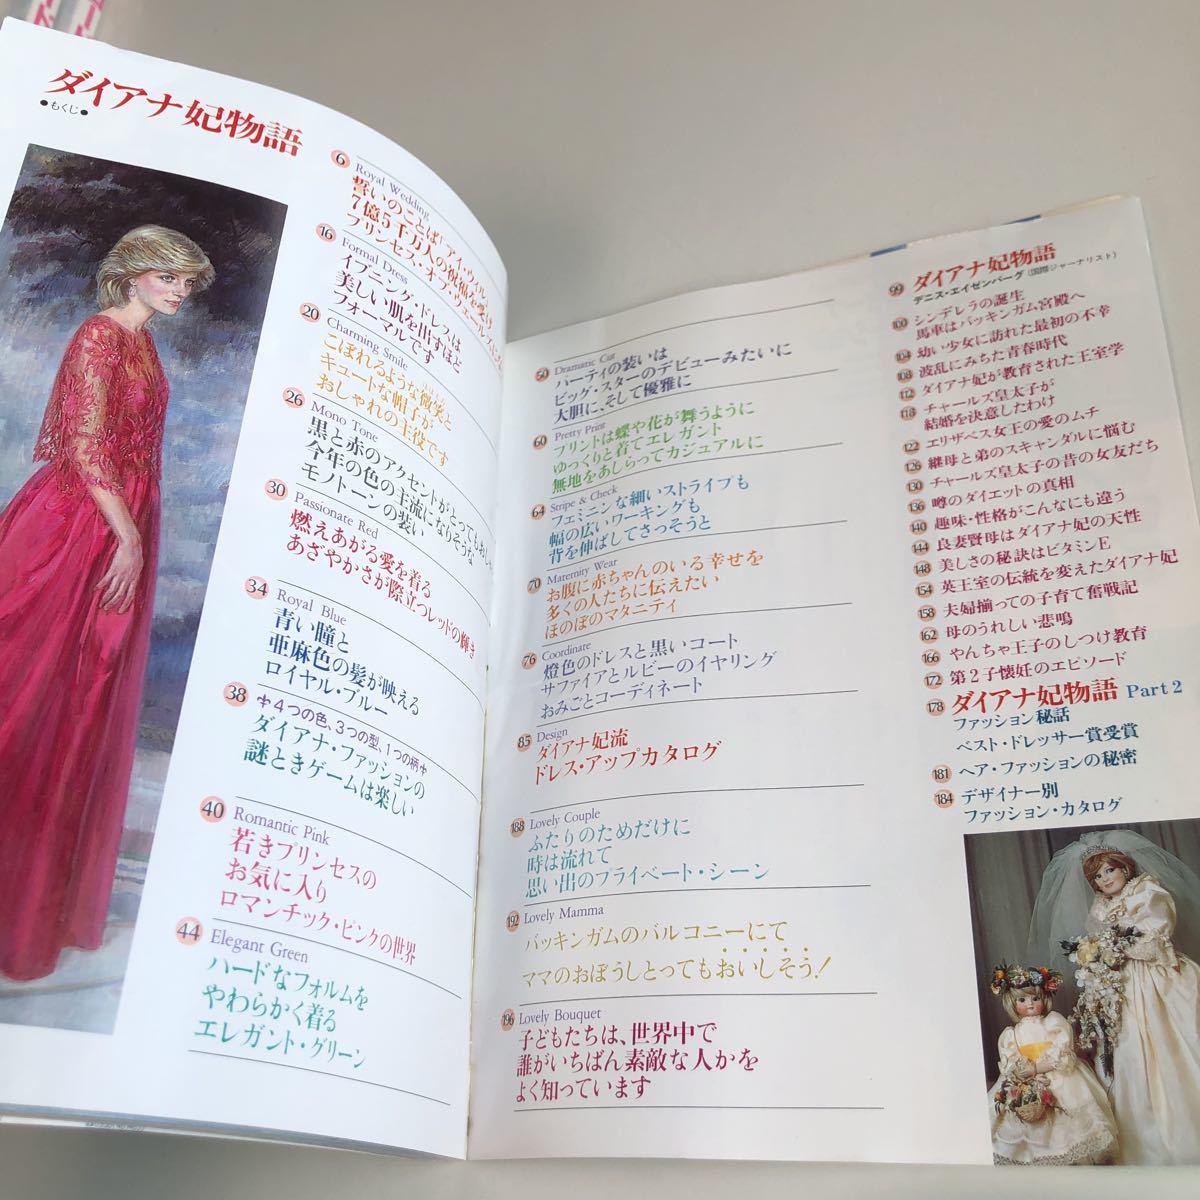 ダイアナ妃物語
●もくじ●
6
Royal Wedding
誓いのことば「アイ・ウィル」
7億5千万人の祝福を受け
プリンセス・オブ・ウェールズに
16
Formal Dress
イブニング・ドレスは
美しい肌を出すほど
フォーマルです
20
Charming Smile
こぼれるような微笑と
キュートな帽子が
おしゃれの主役です
26
Mono Tone
黒と赤のアクセントがとってもおしゃ
今年の色の主流になりそうな
モノトーンの装い
30
Passionate Red
燃えあがる愛を着る
あざやかさが際立つレッドの輝き
34
Royal Blue
青い瞳と
亜麻色の髪が映える
ロイヤル・ブルー
38
中4つの色、3つの型、1つの柄中
ダイアナ・ファッションの
謎ときゲームは楽しい
40
Romantic Pink
若きプリンセスの
お気に入り
ロマンチック・ピンクの世界
44
Elegant Green
ハードなフォルムを
やわらかく着る
エレガント・グリーン
50
Dramatic Cut
パーティの装いは
ビッグ・スターのデビューみたいに
大胆に、そして優雅に
60
Pretty Print
プリントは蝶や花が舞うように
ゆっくりと着てエレガント
無地をあしらってカジュアルに
64
Stripe & Check
フェミニンな細いストライプも
幅の広いワーキングも
背を伸ばしてさっそうと
70
Maternity Wear
お腹に赤ちゃんのいる幸せを
多くの人たちに伝えたい
ほのぼのマタニティ
76
Coordinate
燈色のドレスと黒いコート
サファイアとルビーのイヤリング
おみごとコーディネート
85
Design
ダイアナ妃流
ドレス・アップカタログ
188
Lovely Couple
ふたりのためだけに
時は流れて
思い出のプライベート・シーン
192
Lovely Mamma
バッキンガムのバルコニーにて
ママのおぼうしとってもおいしそう!
196
Lovely Bouquet
子どもたちは、世界中で
誰がいちばん素敵な人かを
よく知っています
99 ダイアナ妃物語
デニス・エイゼンバーグ(国際ジャーナリスト)
100 シンデレラの誕生
馬車はバッキンガム宮殿へ
104 幼い少女に訪れた最初の不幸
108 波乱にみちた青春時代
112 ダイアナ妃が教育された王室学
118 チャールズ皇太子が
結婚を決意したわけ
122 エリザベス女王の愛のムチ
126 継母と弟のスキャンダルに悩む
130 チャールズ皇太子の昔の女友だち
136 噂のダイエットの真相
140 趣味・性格がこんなにも違う
144 良妻賢母はダイアナ妃の天性
148 美しさの秘訣はビタミンE
154 英王室の伝統を変えたダイアナ妃
158 夫婦揃っての子育て奮戦記
162 母のうれしい悲鳴
166 やんちゃ王子のしつけ教育
172 第2子懐妊のエピソード
178 ダイアナ妃物語 Part 2
ファッション秘話
ベスト・ドレッサー賞受賞
181 ヘア・ファッションの秘密
184 デザイナー別
ファッション・カタログ